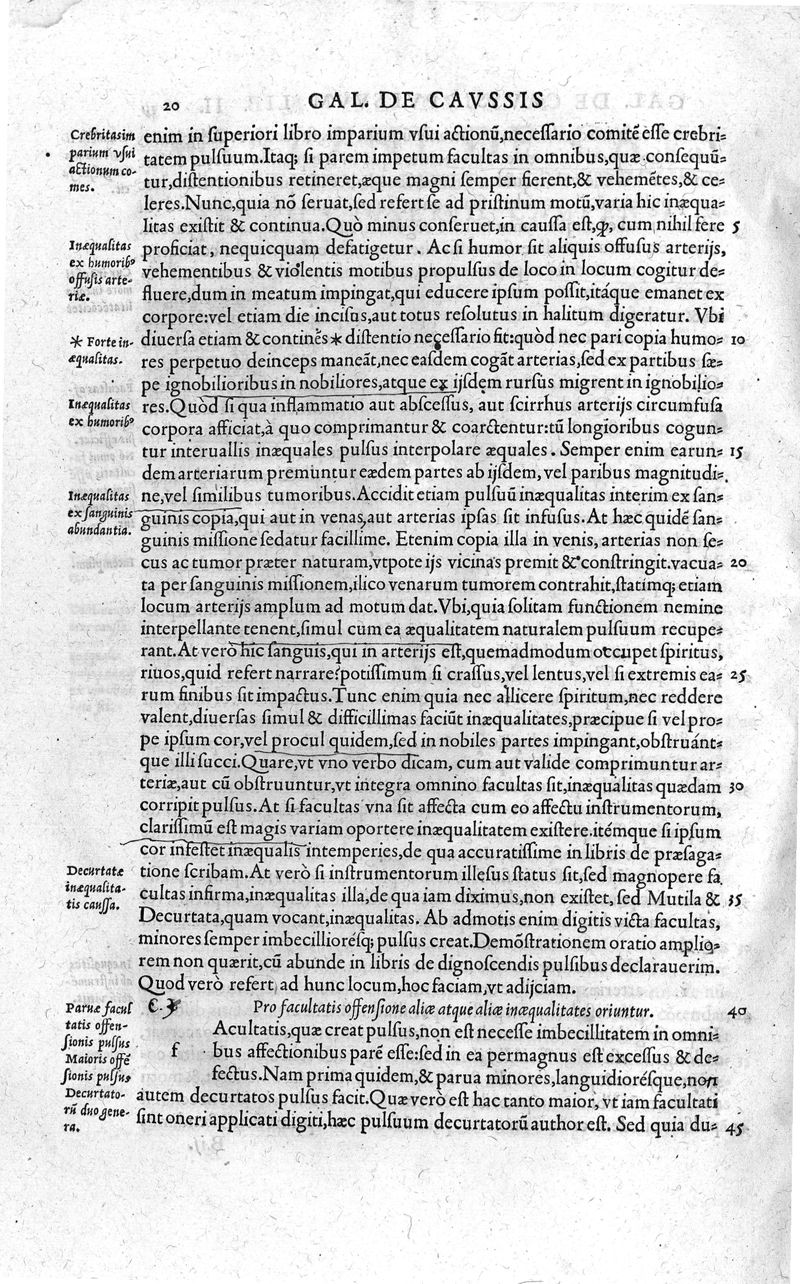 20 GAL. DE CAVSSIS
Crebritas im
parium vsui
actionum co-
mes.
enim in superiori libro imparium vsui actionũ,necessario comitẽ esse crebri-
tatem pulsuum.Itaq; si parem impetum facultas in omnibus,quæ consequũ-
tur,distentionibus retineret,æque magni semper fierent,& vehemẽtes,& ce-
leres.Nunc,quia nõ seruat,sed refert se ad pristinum motũ,varia hic inæqua-
litas existit & continua.Quò minus conseruet,in caussa est, cum nihil fere 5
Inæqualitas
ex humoribꝰ
offusis arte-
riæ.
proficiat, nequicquam defatigetur. Ac si humor sit aliquis offusus arterijs,
vehementibus & violentis motibus propulsus de loco in locum cogitur de-
fluere,dum in meatum impingat,qui educere ipsum possit,itáque emanet ex
corpore:vel etiam die incisus,aut totus resolutus in halitum digeratur. Vbi
* Forte in-
æqualitas.
diuersa etiam & continẽs* distentio necessario fit:quòd nec pari copia humo- 10
res perpetuo deinceps maneãt,nec easdem cogãt arterias,sed ex partibus sæ-
pe ignobilioribus in nobiliores,atque ex ijsdem rursùs migrent in ignobilio-
Inæqualitas
ex humoribꝰ
res.Quòd si qua inflammatio aut abscessus, aut scirrhus arterijs circumfusa
corpora afficiat,à quo comprimantur & coarctentur:tũ longioribus cogun-
tur interuallis inæquales pulsus interpolare æquales. Semper enim earun- 15
dem arteriarum premuntur eædem partes ab ijsdem, vel paribus magnitudi-
Inæqualitas
ex sanguinis
abundantia.
ne,vel similibus tumoribus.Accidit etiam pulsuũ inæqualitas interim ex san-
guinis copia,qui aut in venas,aut arterias ipsas sit infusus.At hæc quidẽ san-
guinis missione sedatur facillime. Etenim copia illa in venis, arterias non se-
cus ac tumor præter naturam,vtpote ijs vicinas premit & constringit.vacua- 20
ta per sanguinis missionem,ilico venarum tumorem contrahit,statimq; etiam
locum arterijs amplum ad motum dat.Vbi,quia solitam functionem nemine
interpellante tenent,simul cum ea æqualitatem naturalem pulsuum recupe-
rant.At verò hic sanguis,qui in arterijs est,quemadmodum occupet spiritus,
riuos,quid refert narrare?potissimum si crassus,vel lentus,vel si extremis ea- 25
rum finibus sit impactus.Tunc enim quia nec allicere spiritum,nec reddere
valent,diuersas simul & difficillimas faciũt inæqualitates,præcipue si vel pro-
pe ipsum cor,vel procul quidem,sed in nobiles partes impingant,obstruánt-
que illi succi.Quare,vt vno verbo dicam, cum aut valide comprimuntur ar-
teriæ,aut cũ obstruuntur,vt integra omnino facultas sit,inæqualitas quædam 30
corripit pulsus.At si facultas vna sit affecta cum eo affectu instrumentorum,
clarissimũ est magis variam oportere inæqualitatem existere.itémque si ipsum
cor infestet inæqualis intemperies, de qua accuratissime in libris de præsaga-
Decurtatæ
inæqualita-
tis caussa.
tione scribam. At verò si instrumentorum illesus status sit,sed magnopere fa
cultas infirma,inæqualitas illa,de qua iam diximus,non existet, sed Mutila & 35
Decurtata,quam vocant,inæqualitas. Ab admotis enim digitis victa facultas,
minores semper imbecillioresq; pulsus creat.Demõstrationem oratio amplio-
rem non quærit,cũ abunde in libris de dignoscendis pulsibus declarauerim.
Quod verò refert ad hunc locum,hoc faciam,vt adijciam.
Paruæ facul
tatis offen-
sionis pulsus
Maioris offẽ
sionis pulsus
Decurtato-
rũ duo gene-
ra.
Pro facultatis offensione aliæ atque aliæ inæqualitates oriuntur. 40
f Acultatis,quæ creat pulsus,non est necesse imbecillitatem in omni-
bus affectionibus parẽ esse:sed in ea permagnus est excessus & de-
fectus.Nam prima quidem,& parua minores,languidioresque,non
autem decurtatos pulsus facit.Quæ verò est hac tanto maior, vt iam facultati
sint oneri applicati digiti,hæc pulsuum decurtatorũ author est. Sed quia du- 45